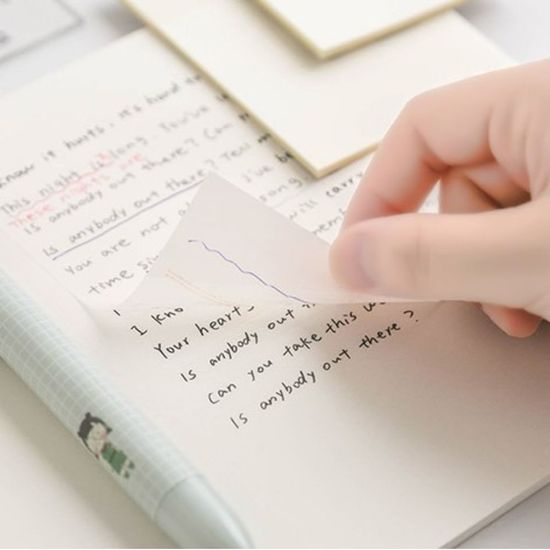 know it hurts. It's hard to
This night is long. You've
These nights are
Is anybody out there? Can
Is anybody out there? Tell me
You are not I've
time since song
will carry
I kno
Your heart
Is anybody out
Can you take this
Is anybody out there?